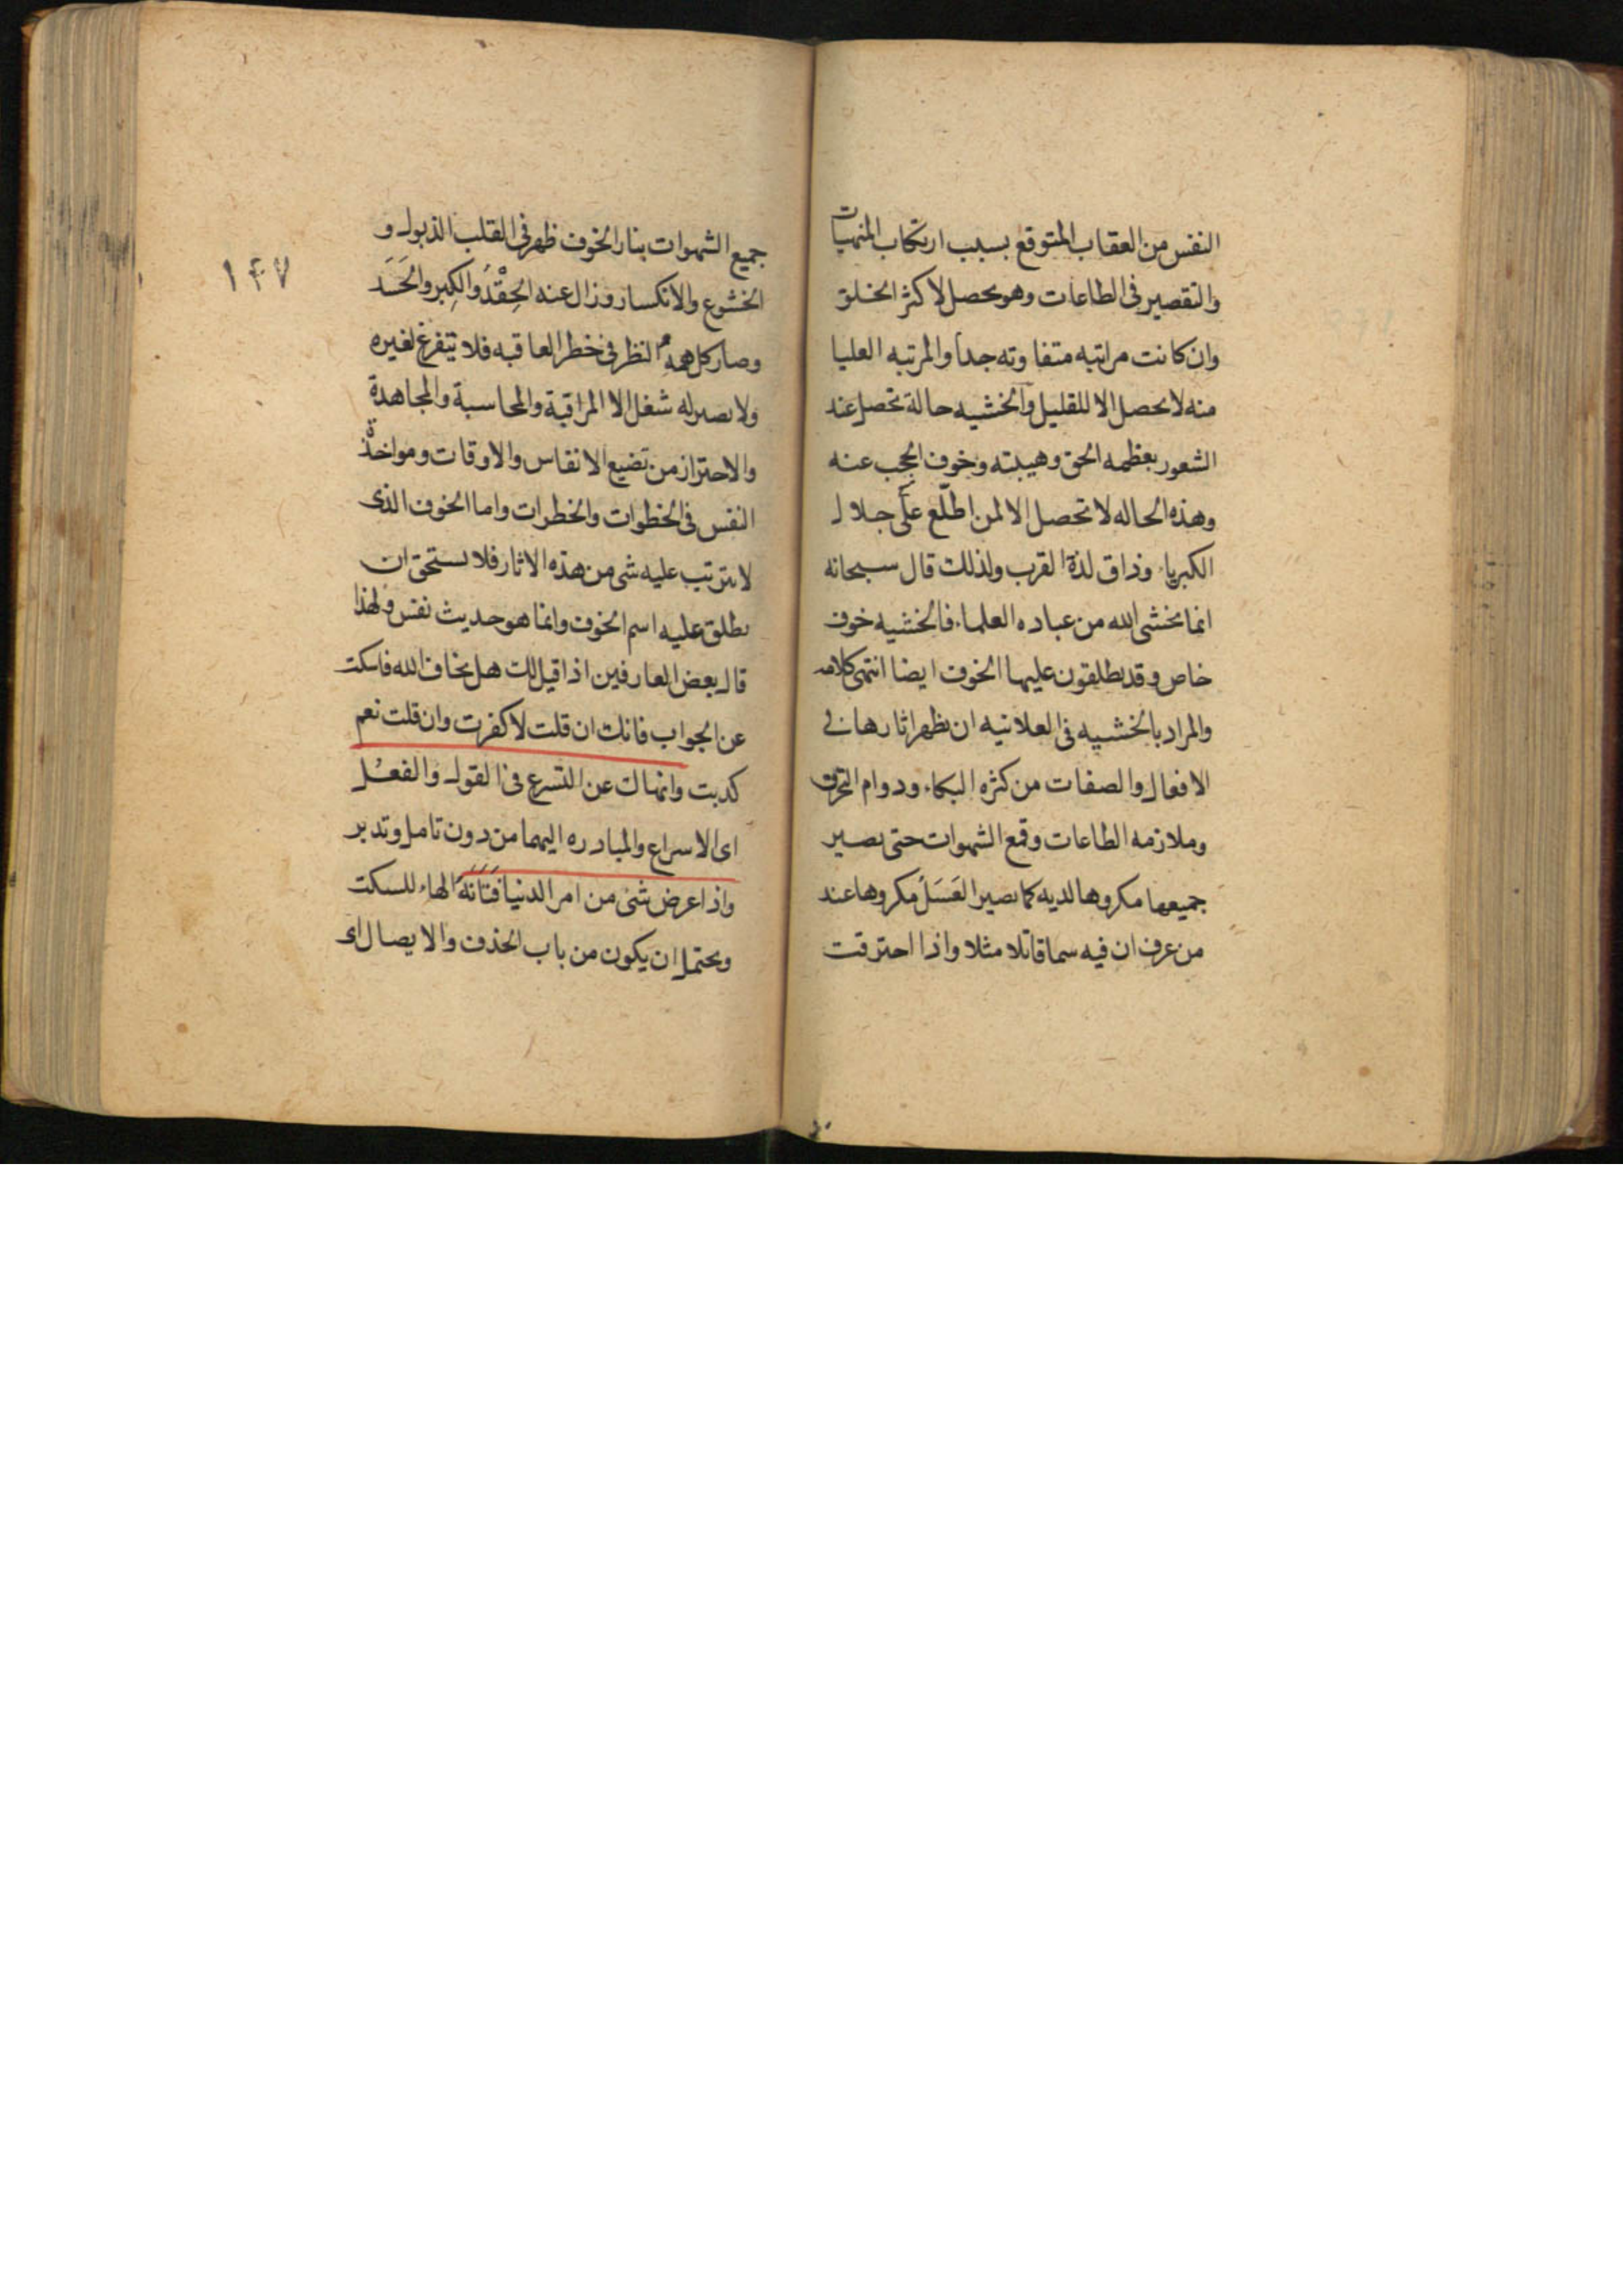 النفس من العقاب المتوقع بسبب ارتكاب المنهيات
والتقصير فى الطاعات وهو يحصل لاكثر الخلق
وان كانت مراتبه متفاوته جدا والمرتبه العليا
منه لا يحصل الا للقليل والخشيه حالة تحصل عند
الشعور بعظمه الحق وهيبته وخوف الحجب عنه
وهذه الحاله لا تحصل الا لمن اطلّع على جلال
الكبرياء وذاق لذة القرب ولذلك قال سبحانه
انما يخشى الله من عباده العلماء فالخشيه خوف
خاص وقد يطلقون عليها الخوف ايضا انتهى كلامه
والمراد بالخشيه فى العلانيه ان يظهر اثارها فى
الافعال والصفات من كثره البكاء ودوام التحرق
وملازمه الطاعات وقمع الشهوات حتى يصير
جميعها مكروها لديه كما يصير العَسَلُ مكروها عند
من عرف ان فيه سما قاتلا مثلا واذا احترقت
١٤٧
جميع الشهوات بنار الخوف ظهر فى القلب الذبول و
الخشوع والانكسار وزال عنه الحِقْدُ والكِبر والحَسَد
وصار كل همه النظر فى خطر العاقبه فلا يتفرغ لغيره
ولا يصير له شغل الا المراقبة والمحاسبة والمجاهدة
والاحتراز من تضيع الانفاس والاوقات ومواخذة
النفس فى الخطوات والخطرات واما الخوف الذى
لا يترتب عليه شى من هذه الاثار فلا يستحق ان
يطلق عليه اسم الخوف وانما هو حديث نفس ولهذا
قال بعض العارفين اذا قيل لك هل يخاف الله فاسكت
عن الجواب فانك ان قلت لا كفرت وان قلت نعم
كدبت وانهاك عن التسرع فى القول والفعل
اى الاسراع والمبادره اليهما من دون تامل وتدبر
واذا عرض شئ من امر الدنيا فَتَأَنَّهْ الهاء للسكت
ويحتمل ان يكون من باب الحذف والايصال اى